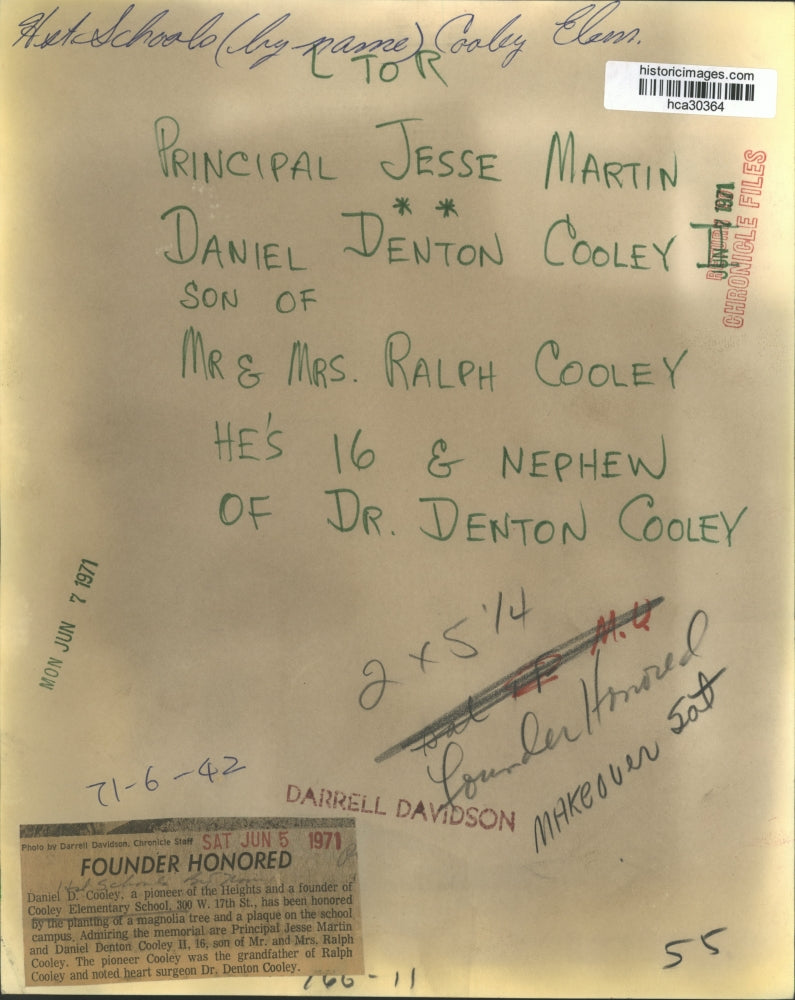 Hst-Schools (by name) Cooley Elem.
L TO R
historicimages.com
hca30364
PRINCIPAL JESSE MARTIN
* *
DANIEL DENTON COOLEY II
SON OF
MR & MRS. RALPH COOLEY
HE'S 16 & NEPHEW
OF DR. DENTON COOLEY
JUN 7 1971
CHRONICLE FILES
MON JUN 7 1971
2 x 5 1/4
M.Q
Sat
Founder Honored
MAKEOVER Sat
71-6-42
DARRELL DAVIDSON
Photo by Darrell Davidson, Chronicle Staff
SAT JUN 5 1971
FOUNDER HONORED
Daniel D. Cooley, a pioneer of the Heights and a founder of
Cooley Elementary School, 300 W. 17th St., has been honored
by the planting of a magnolia tree and a plaque on the school
campus. Admiring the memorial are Principal Jesse Martin
and Daniel Denton Cooley II, 16, son of Mr. and Mrs. Ralph
Cooley. The pioneer Cooley was the grandfather of Ralph
Cooley and noted heart surgeon Dr. Denton Cooley.
55